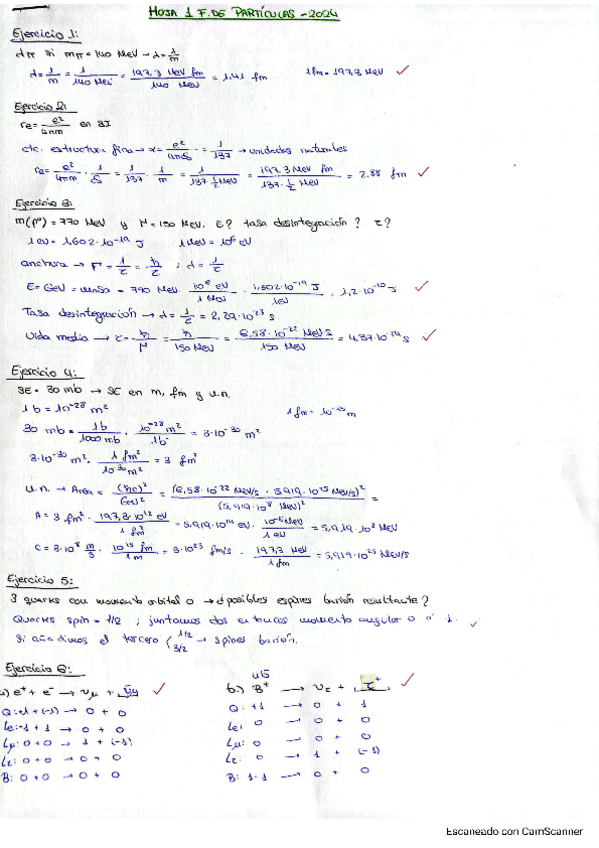 HOJA 1 F. DE PARTÍCULAS - 2024
Ejercicio 1:
dπ si mπ = 140 MeV → d = λ/m
d = 1/m = 1/140 MeV = 197,3 MeV fm / 140 MeV = 1,41 fm 1 fm = 197,3 MeV ✓
Ejercicio 2:
re = e²/4πm en SI
cte. estructura fina → α = e²/4πε₀ = 1/137 → unidades naturales
= 1/137 · 1/m = 197,3 MeV fm / 137·½ MeV = 2.88 fm ✓
Ejercicio 3:
m(ρ⁰) = 770 MeV y Γ = 150 MeV. E? tasa desintegración? τ?
1 eV = 1,602·10⁻¹⁹ J 1 MeV = 10⁶ eV
anchura → Γ = 1/τ = ħ/τ ; λ = 1/τ
· 10⁶ eV / 1 MeV · 1,602·10⁻¹⁹ J / 1 eV = 1,2·10⁻¹⁰ J ✓
Tasa desintegración → λ = 1/τ = 2,29·10²³ s
Vida media → τ = ħ/Γ = ħ/150 MeV = 6,58·10⁻²² MeV s / 150 MeV = 4,37·10⁻²⁴ s ✓
Ejercicio 4:
SE = 30 mb → SE en m, fm y u.n.
1 b = 10⁻²⁸ m² 1 fm = 10⁻¹⁵ m
30 mb · 1 b / 1000 mb · 10⁻²⁸ m² / 1 b = 3·10⁻³⁰ m²
3·10⁻³⁰ m² · 1 fm² / 10⁻³⁰ m² = 3 fm²
u.n. → Area = (ħc)²/GeV² = (6,58·10⁻²² MeV/s · 5,919·10²⁵ MeV/s)² / (5,919·10⁸ MeV)² =
A = 3 fm² · 197,3·10¹² eV / 1 fm² = 5,919·10¹⁴ eV · 10⁻⁶ MeV / 1 eV = 5,919·10⁸ MeV
C = 3·10⁸ m/s · 10¹⁵ fm / 1 m = 3·10²³ fm/s · 197,3 MeV / 1 fm = 5,919·10²⁵ MeV/s
Ejercicio 5:
3 quarks con momento orbital 0 → ¿posibles espines barión resultante?
Quarks spin = 1/2 ; juntamos dos entonces momento angular 0 ó 1. ✓
Si añadimos el tercero { 1/2 3/2 → spines barión.
Ejercicio 6:
a) e⁺ + e⁻ → νμ + ν̄μ ✓
Q: +1 + (-1) → 0 + 0
Le: -1 + 1 → 0 + 0
Lμ: 0 + 0 → 1 + (-1)
Lτ: 0 + 0 → 0 + 0
B: 0 + 0 → 0 + 0
ub̄
b) B⁺ → ντ + τ⁺ ✓
Q: +1 → 0 + 1
Le: 0 → 0 + 0
Lμ: 0 → 0 + 0
Lτ: 0 → 1 + (-1)
B: 1-1 → 0 + 0
Escaneado con CamScanner